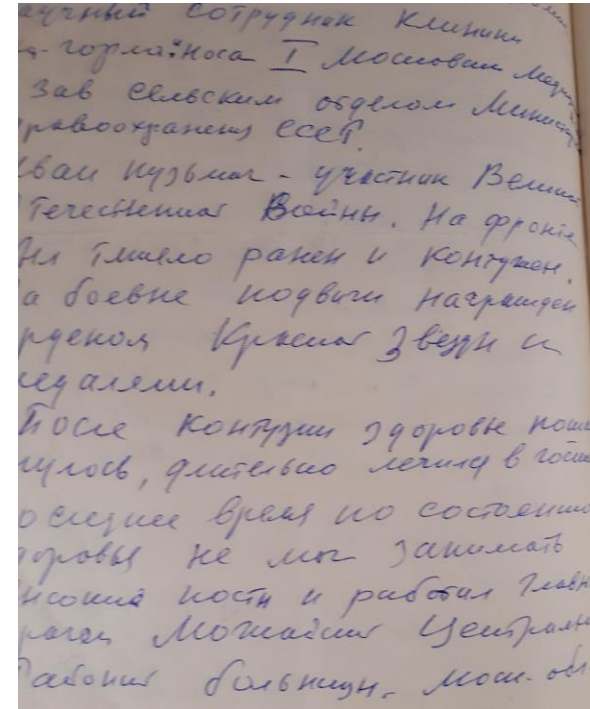 аучный сотрудник Клиники
-горла:носа I Московско Меди
Зав сельским отделом Минист
равоохранения СССР.
ван Кузьмич - участник Велик
течественной Войны. На фронте
ыл тяжело ранен и контужен.
а боевые подвиги награжден
рденом Красной Звезды и
едалями.
После контузии здоровье поша
нулось, длительно лечился в госп
оследнее время по состоянию
доровья не мог занимать
ысокий посты и работал главн
рачом Можайской Централь
Районной больницы. Моск-обл